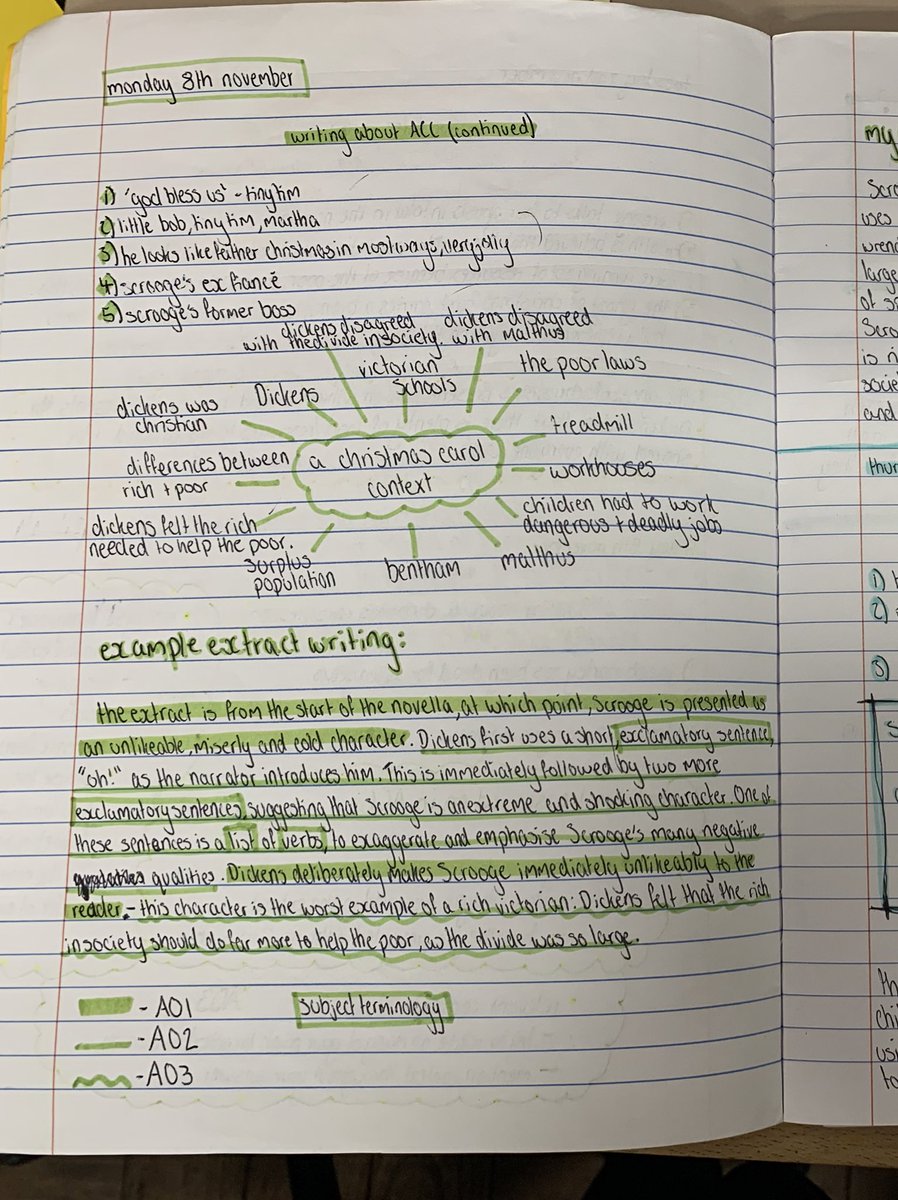 monday 8th november
writing about ACC (continued)
1) 'god bless us' - tiny tim
2) little bob, tiny tim, martha
3) he looks like father christmas in most ways, very jolly
4) scrooge's ex fiancé
5) scrooge's former boss
dickens disagreed
with the divide in society.
dickens disagreed
with malthus
victorian
schools
the poor laws
Dickens
dickens was
christian
treadmill
a christmas carol
context
differences between
rich + poor
workhouses
dickens felt the rich
needed to help the poor.
children had to work
dangerous + deadly jobs
surplus
population
bentham
malthus
example extract writing:
the extract is from the start of the novella, at which point, Scrooge is presented as
an unlikeable, miserly and cold character. Dickens first uses a short exclamatory sentence,
"oh!" as the narrator introduces him. This is immediately followed by two more
exclamatory sentences, suggesting that Scrooge is an extreme and shocking character. One of
these sentences is a list of verbs, to exaggerate and emphasise Scrooge's many negative
qualities. Dickens deliberately makes Scrooge immediately unlikeably to the
reader - this character is the worst example of a rich victorian: Dickens felt that the rich
in society should do far more to help the poor, as the divide was so large.
- AO1
subject terminology
- AO2
- AO3
my
Scro
uses
wrenc
large
of sc
Scro
is ri
socie
and
thur
1)
2)
3)
th
chi
usi
to